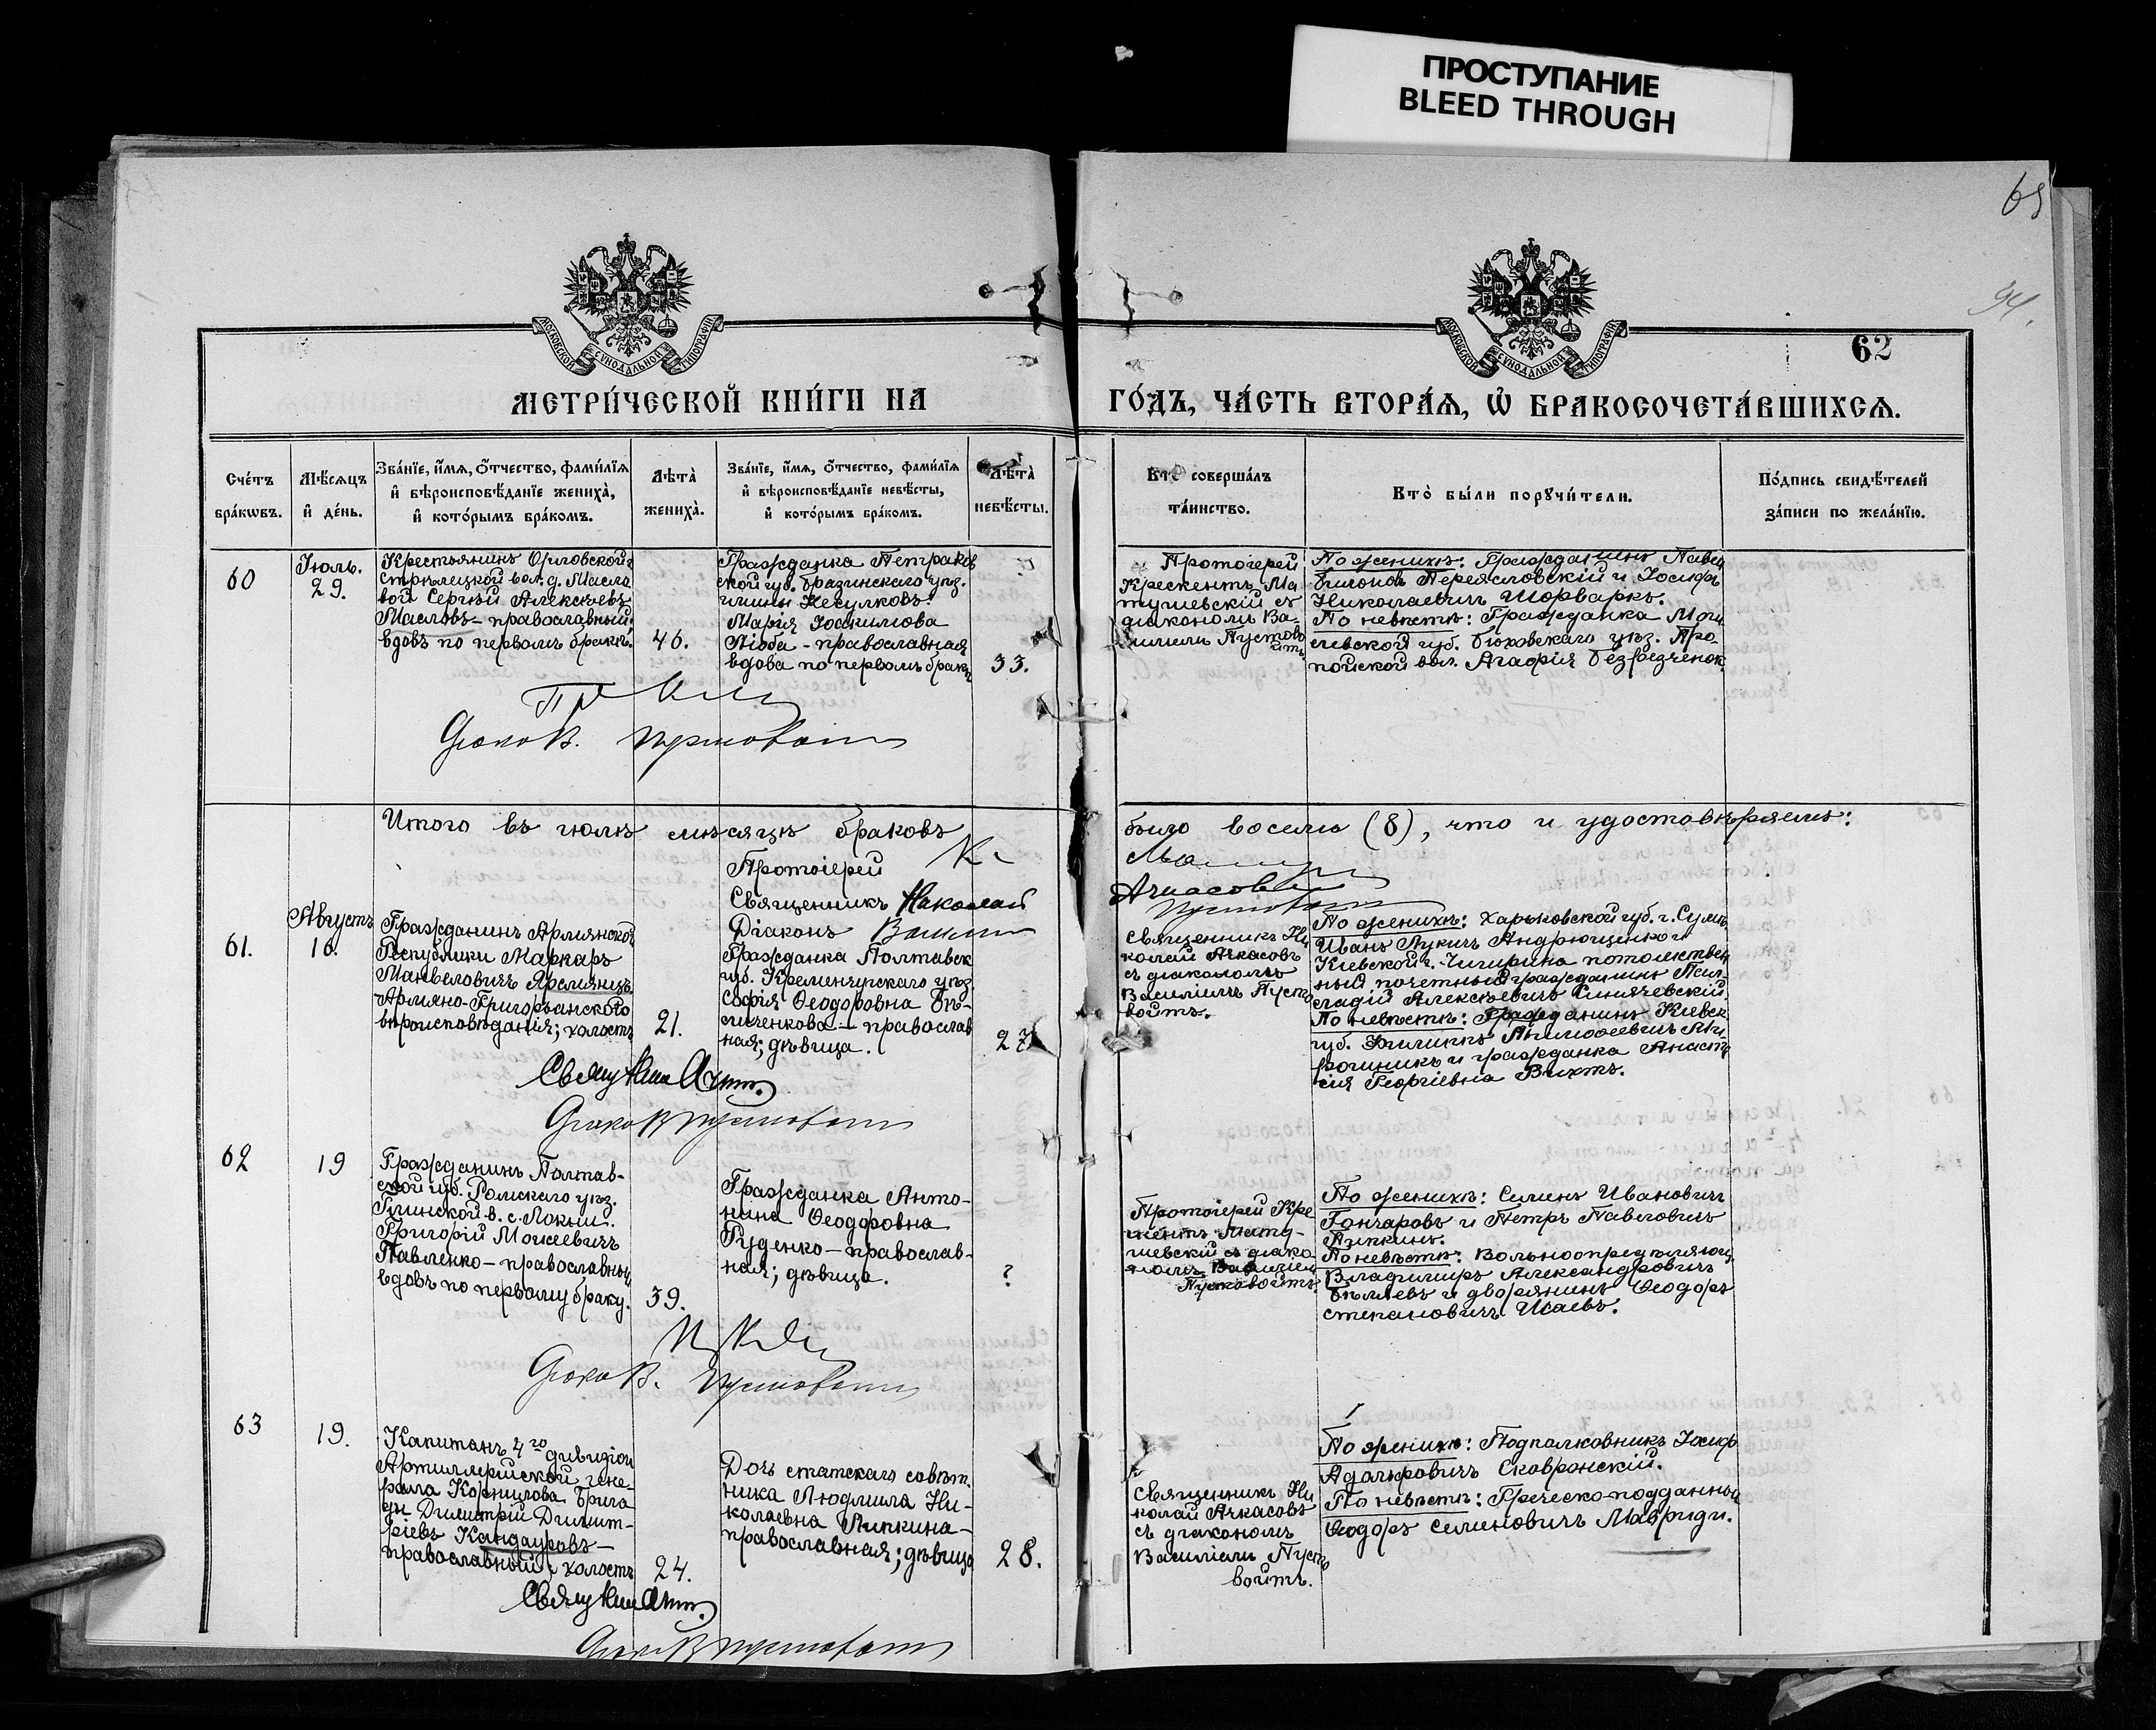 ПРОСТУПАНИЕ
BLEED THROUGH
65
94.
МОСКОВСКОЙ СѴНОДАЛЬНОЙ ТИПОГРАФІИ
МОСКОВСКОЙ СѴНОДАЛЬНОЙ ТИПОГРАФІИ
62
МЕТРИ́ЧЕСКОЙ КНИ́ГИ НА
ГО́ДЪ, ЧА́СТЬ ВТОРА́Я, Ѡ БРАКОСОЧЕТА́ВШИХСЯ.
Сче́тъ
бра́кѡвъ.
Мѣ́сяцъ
и де́нь.
Зва́нїе, и́мя, о́тчество, фами́лїя
и вѣроисповѣ́данїе жениха̀,
и кото́рымъ бра́комъ.
Лѣта̀
жениха̀.
Зва́нїе, и́мя, о́тчество, фами́лїя
и вѣроисповѣ́данїе невѣ́сты,
и кото́рымъ бра́комъ.
Лѣта̀
невѣ́сты.
Кто̀ соверша́лъ
та́инство.
Кто̀ бы́ли порꙋчи́тели.
По́дпись свидѣ́телей
за́писи по жела́нїю.
60
Іюль.
29.
Крестьянинъ Орловской г.
Стрѣлецкой вол. д. Масло
вой Сергѣй Алексѣевъ
Масловъ – православный;
вдовъ по первомъ бракѣ.
46.
Гражданка Петраков
ской губ. Бразинскаго уѣз.
гмины Несулковъ
Марія Іоакимова
Люба – православная
вдова по первомъ бракѣ
33.
Протоіерей
Крескентъ Ма
тушевскій съ
діакономъ Ва-
силіемъ Пустово
йтъ
По женихѣ: Гражданинъ Павел
Переясловскій и Іосифъ
Николаевичъ Шорваркъ.
По невѣстѣ: Гражданка Моги
левской губ. Быховскаго уѣз. Про-
пойской вол. Агафія
Діаконъ В. Пустовойтъ
Итого въ іюлѣ мѣсяцѣ браковъ
было восемь (8), что и удостовѣряемъ:
Протоіерей
Священникъ Николай
Ачкасовъ
Діаконъ
Пустовойтъ
61.
Августъ
10.
Гражданинъ Армянской
Республики Маркаръ
Манвеловичъ Яремянцъ
Армяно-Григорьанского
вѣроисповѣданія; холостъ
21.
Гражданка Полтавск
губ. Кременчугскаго уѣз.
Софія Ѳеодоровна Бѣ-
ченкова – православ
ная; дѣвица.
27
Священникъ Ни
колай Ачкасовъ
съ діакономъ
Василіемъ Пусто
войтъ.
По женихѣ: Харьковской губ. г. Сумъ
Иванъ Лукичъ Андрющенко и
Кіевской г. Чигирина потомствен
ный почетный гражданинъ
Алексѣевичъ
По невѣстѣ: Гражданинъ Кіевск
губ. Филиппъ
и гражданка Анаста
сія Георгіевна Вихтъ.
Діаконъ В. Пустовойтъ
62
19
Гражданинъ Полтав-
ской губ. Роменскаго уѣз.
Глинской в. с. Локни.
Григорій Моисеевичъ
Павленко – православный
вдовъ по первому браку.
39.
Гражданка Анто-
нина Ѳеодоровна
Руденко – православ-
ная; дѣвица.
?
Протоіерей Кре
скентъ Мату-
шевскій съ діако
номъ Василіем
Пустовойтъ.
По женихѣ: Семенъ Ивановичъ
Гончаровъ и Петръ Павловичъ
Липкинъ.
По невѣстѣ: Вольноопредѣляющ
Владимиръ Александровичъ
Бѣляевъ и дворянинъ Ѳеодоръ
Степановичъ Исаевъ.
Діаконъ В. Пустовойтъ
63
19.
Капитанъ 4го дивизіон
Артиллерійской гене-
рала Корнилова Брига
ды Димитрій Димит-
ріевъ Кандауровъ –
православный; холостъ
24.
Дочь статскаго совѣт-
ника Людмила Ни-
колаевна Липкина –
православная; дѣвица
28.
Священникъ Ни
колай Ачкасовъ
съ діакономъ
Василіемъ Пусто
войтъ.
По женихѣ: Подполковникъ Іосиф
Адольфовичъ Сковронскій.
По невѣстѣ: Греческо-подданный
Ѳеодоръ Семеновичъ Мавриди.
Діаконъ В. Пустовойтъ